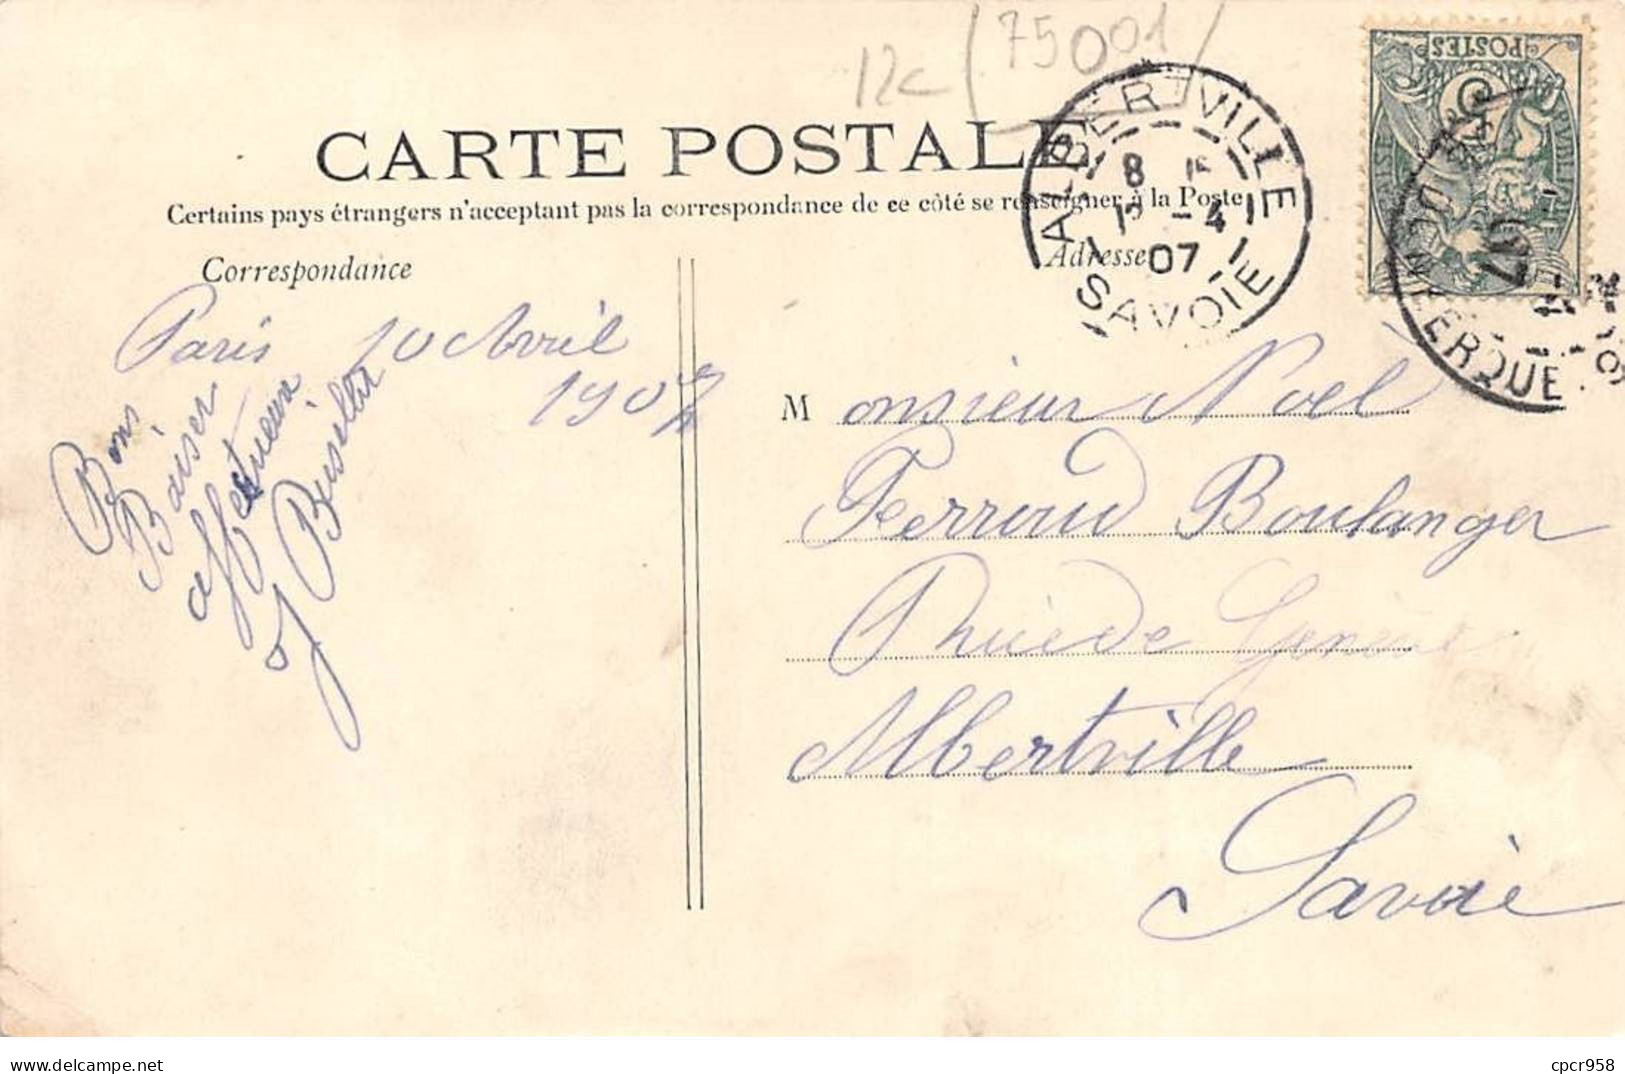 12c (75001)
CARTE POSTALE
Certains pays étrangers n'acceptent pas la correspondance de ce côté se renseigner à la Poste
Correspondance
Adresse
ALBERTVILLE
8
12 -4
07
SAVOIE
POSTES
5
DUNKERQUE
07
Paris 10 Avril
1907
Bons
Baiser
affectueux
M onsieur Noel
Perroud Boulanger
de Genève
Albertville
Savoie
cpcr958